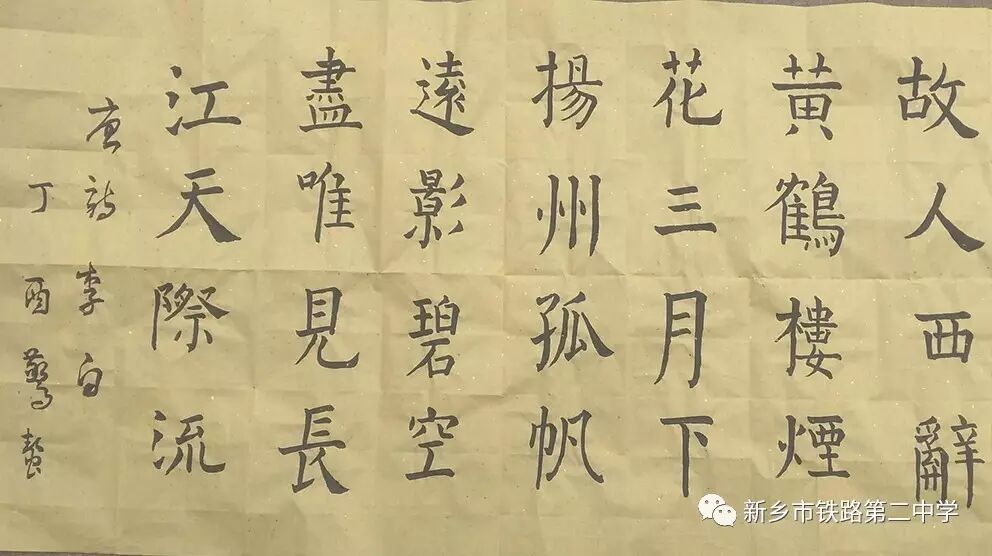 故人西辭
黃鶴樓煙
花三月下
揚州孤帆
遠影碧空
盡唯見長
江天際流
唐詩李白
丁酉驚蟄
新乡市铁路第二中学